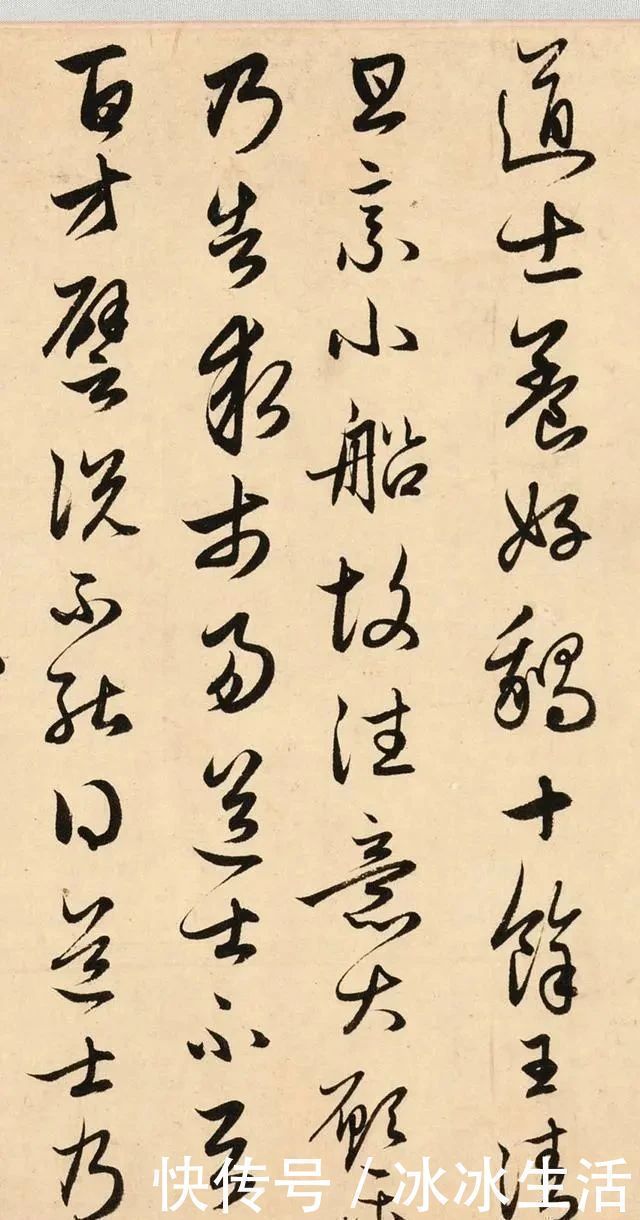 道士養好鵝十餘王清
旦乘小船故往意大願
乃告求市易道士不與
百方譬說不能得道士乃
快传号 / 冰冰生活